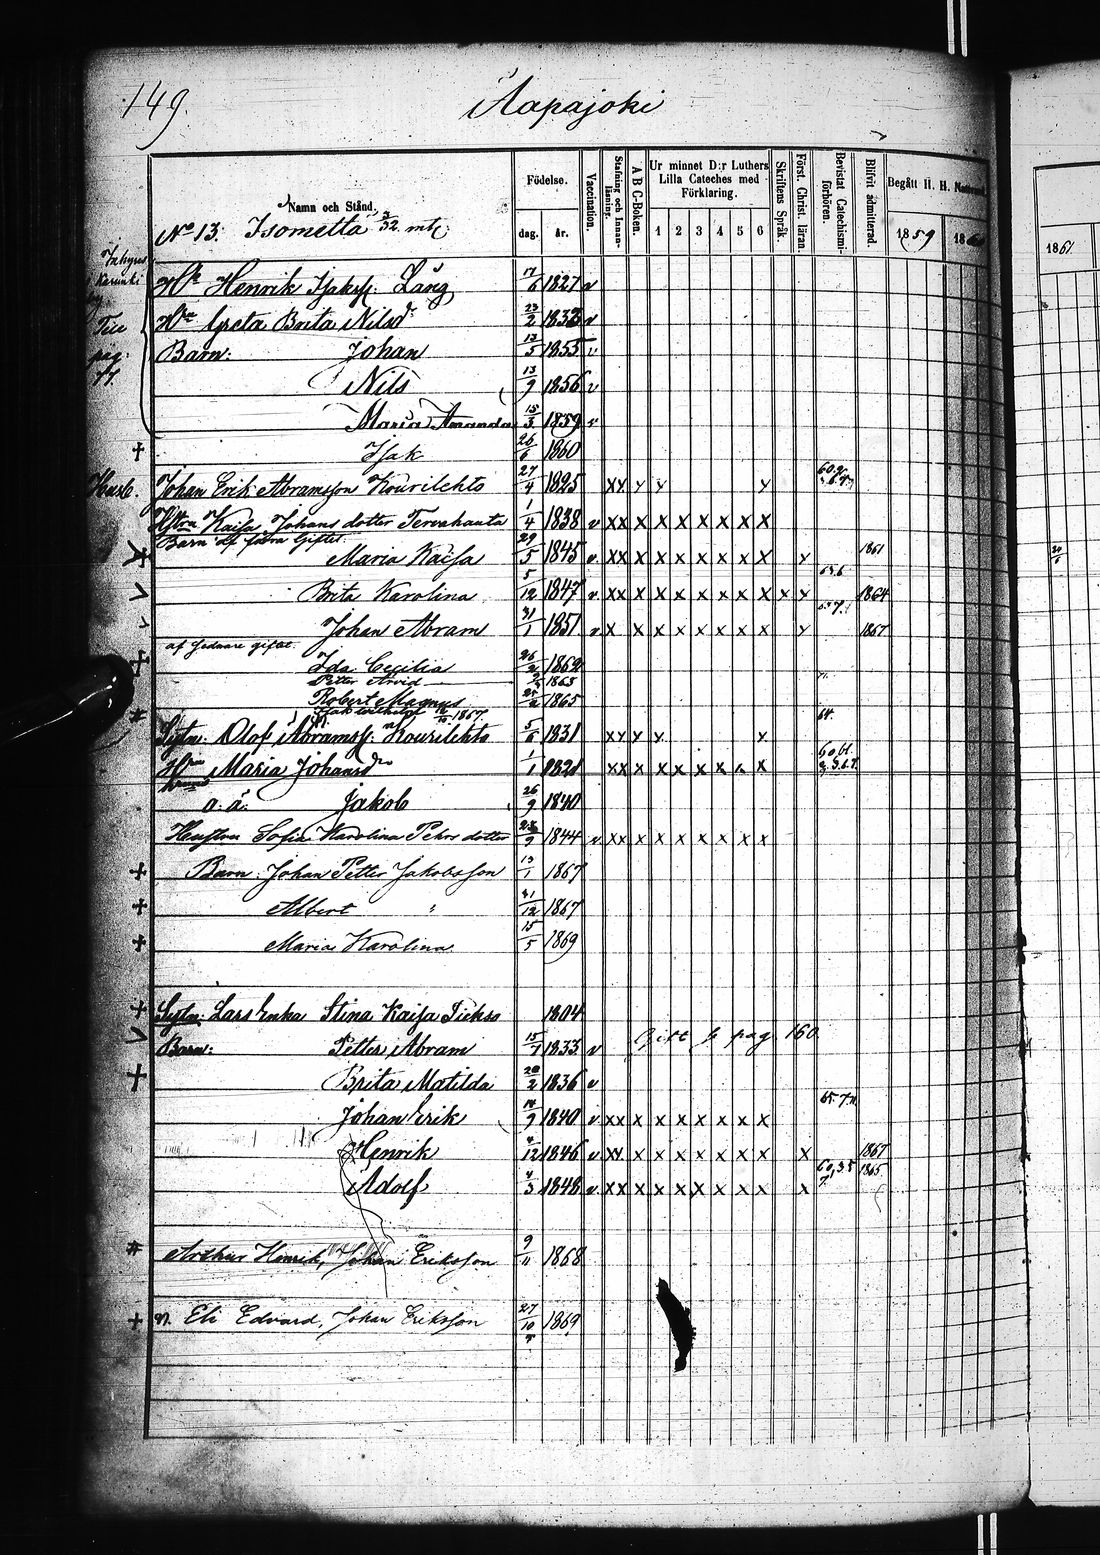 149.
Aapajoki
Namn och Stånd.
Födelse.
dag.
år.
Vaccination.
Stafning och Innanläsning.
A B C-Boken.
Ur minnet D:r Luthers Lilla Cateches med Förklaring.
1 2 3 4 5 6
Skriftens Språk.
Först. Christ. läran.
Bevistat Catechismiförhören.
Blifvit admitterad.
Begått H. H. Nattvard.
1859
1861
No 13. Isometta 3/32 mtl:
pag:
77.
Henrik Isakss. Lång 17/6 1827 v
Greta Brita Nilsdr 23/2 1833 v
Barn: Johan 13/5 1855 v
Nils 13/9 1856 v
Maria Amanda 15/3 1859 v
+ Isak 26/6 1860
Johan Erik Abramsson Kourilehto 27/4 1825 xx y y y
Hstru Kaisa Johans dotter Tervahauta 1/4 1838 v xx x x x x x x x
Barn af förra Giftet
Maria Kaisa 29/5 1845 v. xx x x x x x x x y 1861
Brita Karolina 5/12 1847 v xx x x x x x x x x x 1864
Johan Abram 31/1 1851 v x x x x x x x x y 1867
af sednare giftet.
Ida Cecilia 26/2 1862
Petter Arvid 1863
Robert Magnus 1865
1867.
Sytn: Olof Abramss. Kourilehto 5/6 1831 xx y y y 64.
Maria Johansdr 1/1 1821 xx x x x x x x x
Jakob 26/9 1840
Hustru Sofia Karolina Pehrs dotter 23/9 1844 v xx x x x x x x x
+ Barn: Johan Petter Jakobsson 13/1 1867
+ Albert " 31/12 1867
+ Maria Karolina 15/5 1869
+ Sytn: Lars Enka Stina Kaisa 1804
Barn: Petter Abram 15/1 1833 v Gift pag 160.
+ Brita Matilda 20/2 1836 v
Johan Erik 14/9 1840 v xx x x x x x x x
Henrik 4/12 1846 v xx x x x x x x x x 1867
Adolf 4/3 1848 v xx x x x x x x x x 1865
Arthur Henrik, Johan Eriksson 9/11 1868
+ Eli Edvard, Johan Eriksson 27/10 1869